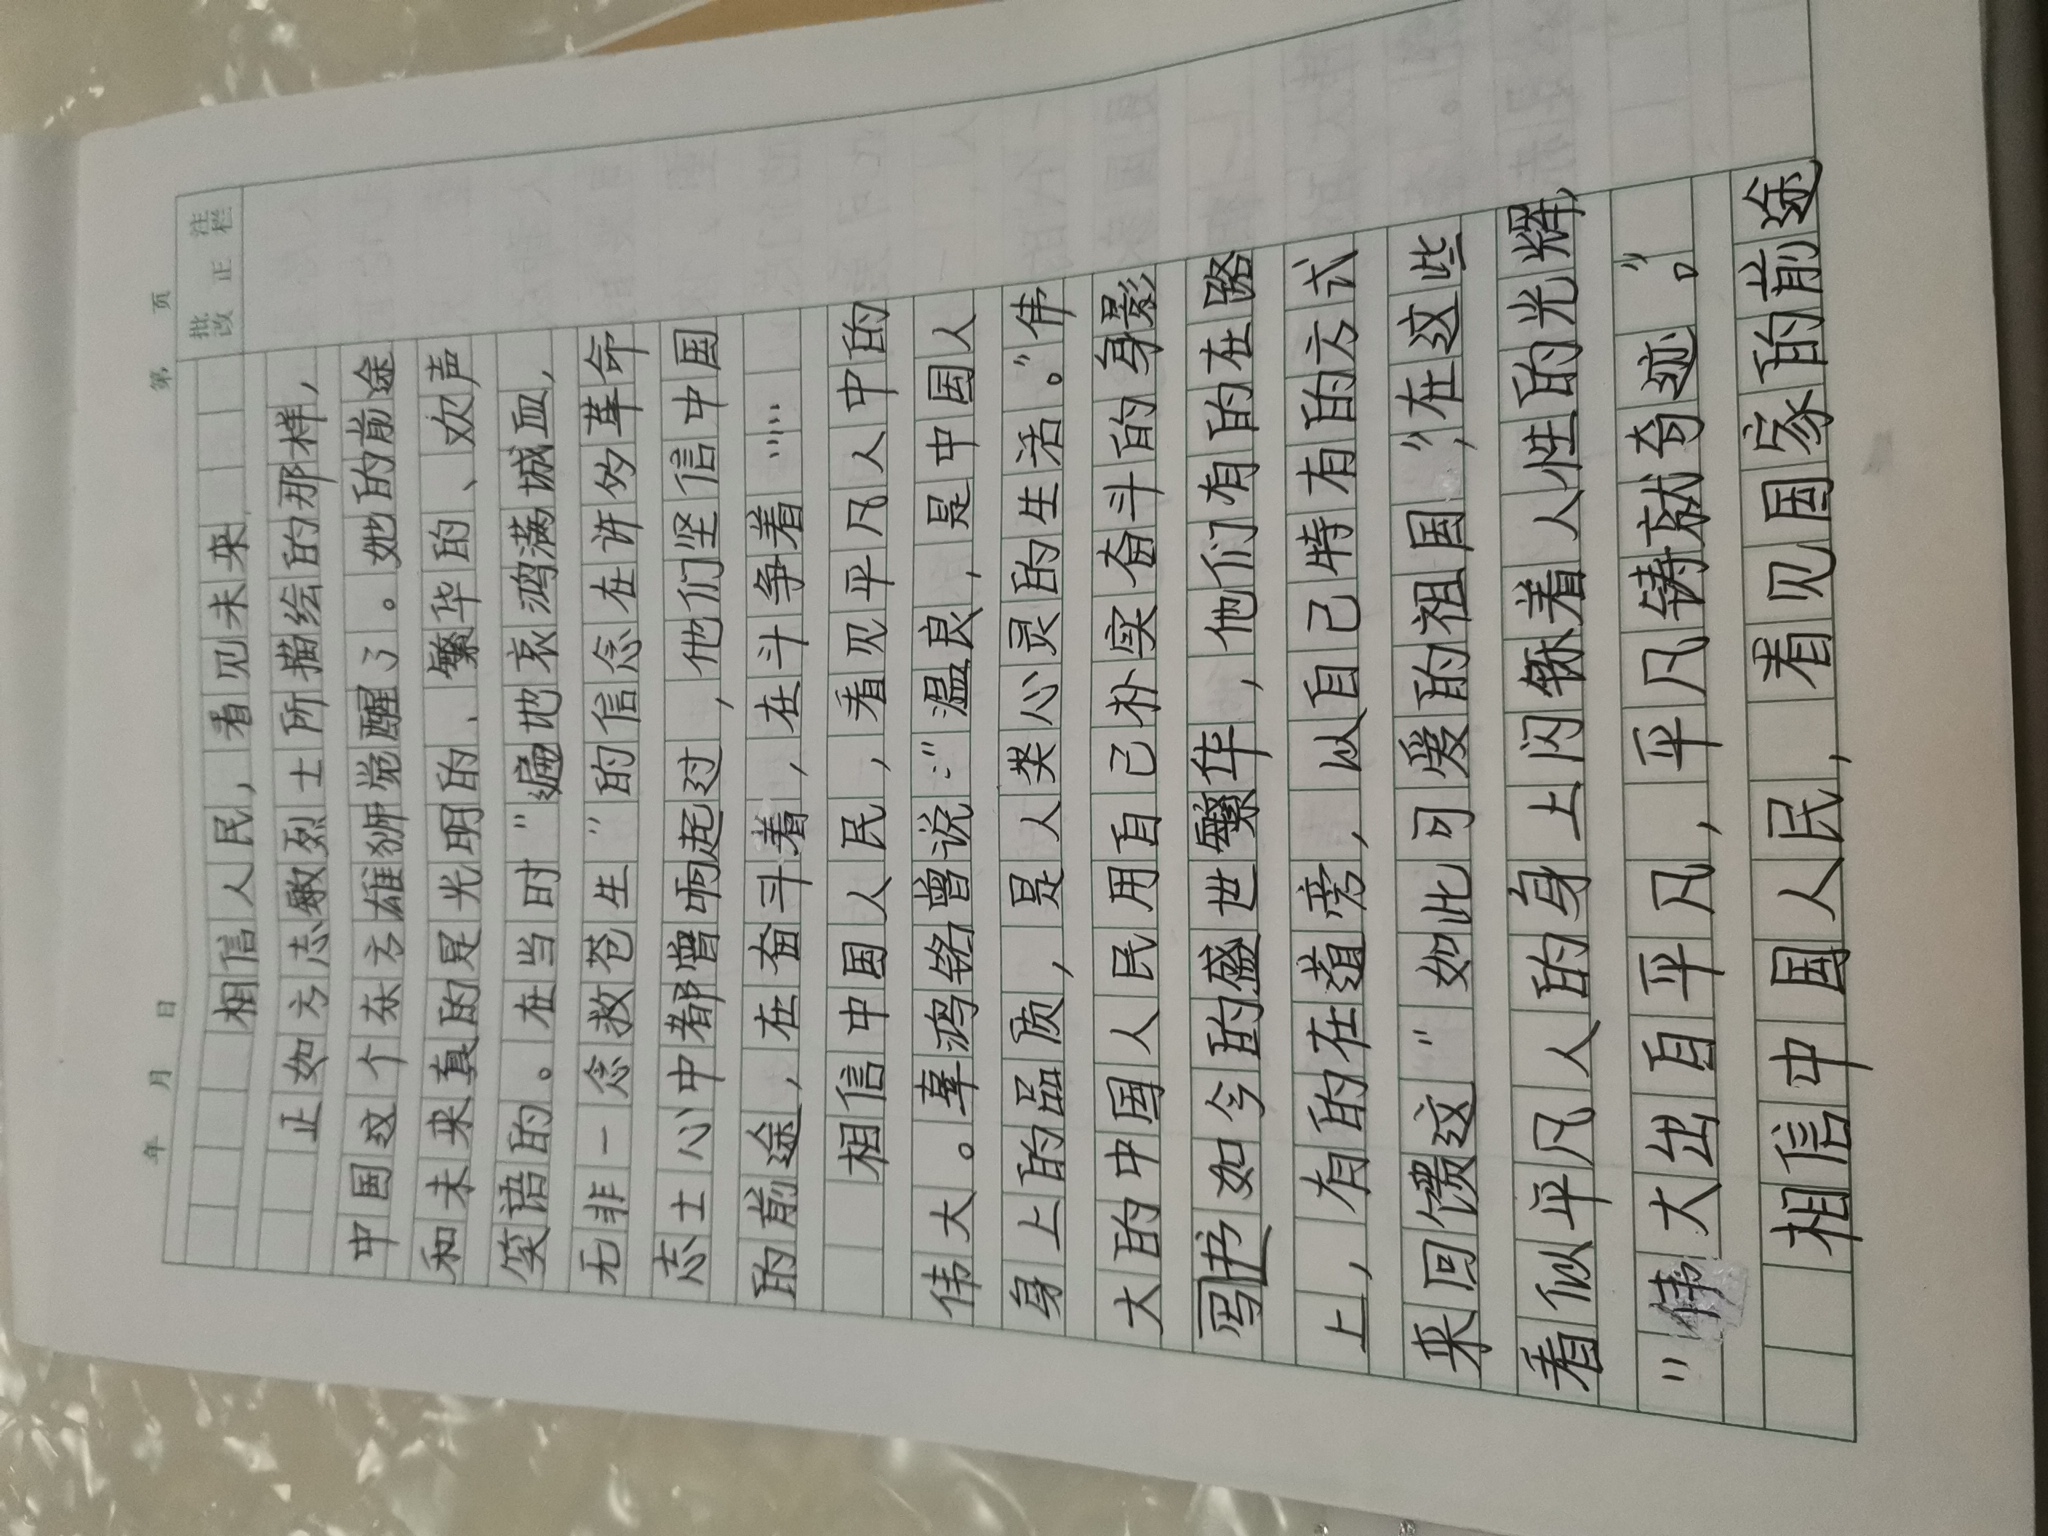 年 月 日 第 页
批改 正 注栏
相信人民，看见未来
正如方志敏烈士所描绘的那样，
中国这个东方雄狮觉醒了。她的前途
和未来真的是光明的、繁华的、欢声
笑语的。在当时“遍地哀鸿满城血，
无非一念救苍生”的信念在许多革命
志士心中都曾响起过，他们坚信中国
的前途，在奋斗着，在斗争着……
相信中国人民，看见平凡人中的
伟大。辜鸿铭曾说：“温良，是中国人
身上的品质，是人类心灵的生活。”伟
大的中国人民用自己朴实奋斗的身影
写书如今的盛世繁华，他们有的在路
上，有的在道旁，以自己特有的方式
来回馈这“如此可爱的祖国”，在这些
看似平凡人的身上闪烁着人性的光辉，
“伟大出自平凡，平凡铸就奇迹。”
相信中国人民，看见国家的前途